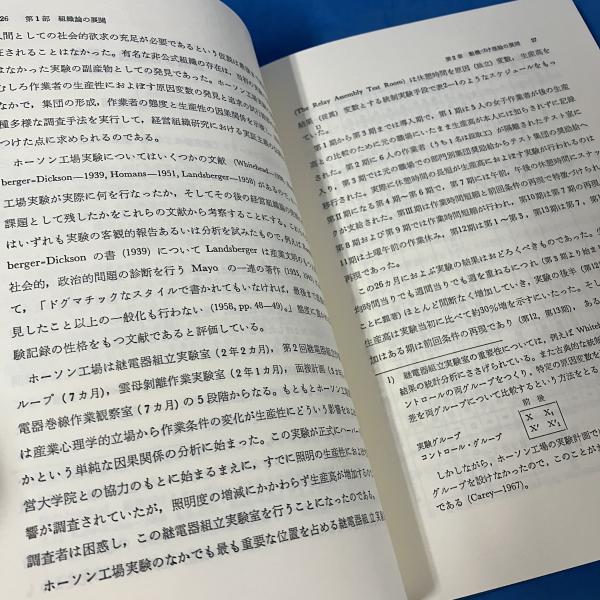 26 第1部 組織論の展開
人間としての社会的欲求の充足が必要であるという仮説は
証されることはなかった。有名な非公式組織の存在は、当初の
むしろ作業者の生産性におよぼす原因変数の発見と追求の
なかで,集団の形成,作業者の態度と生産性の因果関係を
種多様な調査手法を実行して,経営組織研究における実証主義の
つけた点に求められるのである。
ホーソン工場実験についてはいくつかの文献 (Whitehead—
berger=Dickson—1939, Homans—1951, Landsberger—1958) があるので,
工場実験が実際に何を行なったか,そしてその後の経営組織論の
課題として残したかをこれらの文献から考察することにする。これら
はいずれも実験の客観的報告あるいは分析を試みたもので,例えば
berger=Dickson の書 (1939) について Landsberger は産業文献の
社会的,政治的問題の診断を行う Mayo の一連の著作 (1933,
て,「ドグマチックなスタイルで書かれてもいなければ,最後まで
見したこと以上の一般化も行わない (1958, pp. 48—49)。」態度に
験記録の性格をもつ文献であると評価している。
ホーソン工場は継電器組立実験室(2年2ヵ月),第2回継電器組立
ループ(7ヵ月),雲母剝離作業実験室(2年1ヵ月),面接計画
電器巻線作業観察室(7ヵ月)の5段階からなる。もともとホーソン
は産業心理学的立場から作業条件の変化が生産性にどういう影響を
かという単純な因果関係の分析に始まった。この実験が正式にハーバード
営大学院との協力のもとに始まるまえに,すでに照明の生産性におよぼす
響が調査されていたが,照明度の増減にかかわらず生産高が増加する
調査者は困惑し,この継電器組立実験室を行うことになったのである。
ホーソン工場実験のなかでも最も重要な位置を占める継電器組立実験
第2章 動機づけ理論の展開 27
(The Relay Assembly Test Room) は休憩時間を原因(独立)変数,生産高を
結果(従属)変数とする統制実験手段で表2—1のようなスケジュールをもっ
ていた。
第1期から第3期までは導入期で,第1期は5人の女子作業者が後の生産
高との比較のために元の職場にいたまま生産高が本人には知らされずに記録
される。第2期に6人の作業者(うち1名は段取工)が隔離されたテスト室に
入り,第3期では元の職場での部門別集団奨励給からテスト集団の奨励給へ
移行された。実際に休憩時間の長短が生産高におよぼす実験が行われるのは
第II期になる第4期〜第6期で,第7期には午前,午後の休憩時間にスナッ
クが支給された。第III期は作業時間短縮と前回条件の再現で特徴づけられ
第8期および第9期では作業時間短縮が行われ,第10期は第7期の
11期は土曜午前の作業休み,第12期は第1〜第3,第13期は第7,第
再現であった。
この26カ月におよぶ実験の結果はおどろくべきものであった。生
均時間当りでも週間当りでも週を重ねるにつれ(第3期より始まり
ことに顕著)ほとんど間断なく増加していき,実験の後半(第12
生産高は実験当初に比べて約30%増を示すにいたった。そして
加はある期は前回条件の再現であり(第12,第13期),ある
1) 継電器組立実験室の重要性については,例えば White
結果の統計分析にささげられている。また古典的な統制
ントロールの両グループをつくり,特定の原因変数を
差を両グループについて比較するという方法をとる
前 後
実験グループ X X₁
コントロール・グループ X′ X′₁
しかしながら,ホーソン工場の実験計画では
グループを設けなかったので,このことが
である (Carey—1967)。